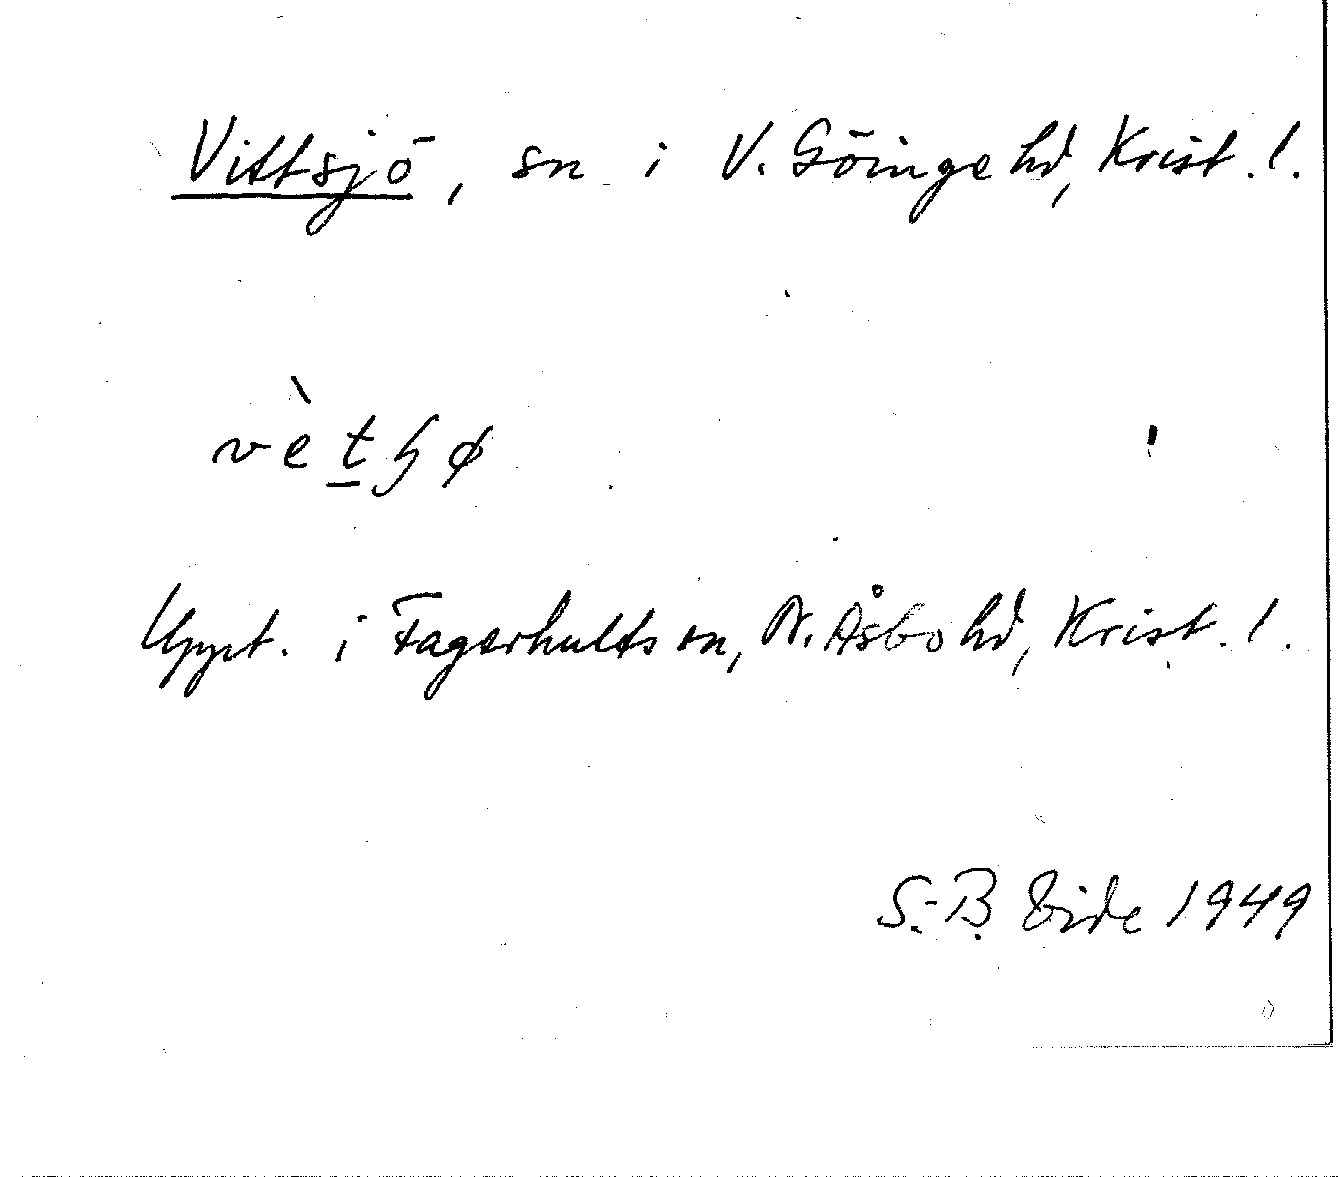 Vittsjö, sn i V. Göinge hd, Krist. l.
vètɧø
Uppt. i Fagerhults sn, N. Åsbo hd, Krist. l.
S.-B. Vide 1949